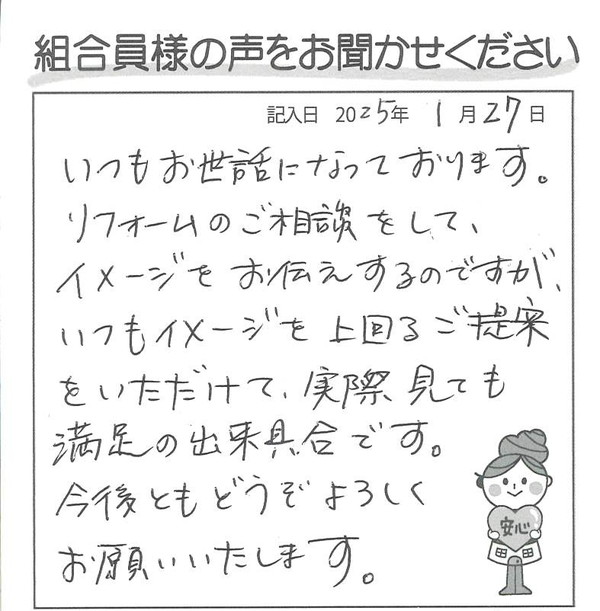 組合員様の声をお聞かせください
記入日 2025年 1月27日
いつもお世話になっております。
リフォームのご相談をして、
イメージをお伝えするのですが、
いつもイメージを上回るご提案
をいただけて、実際見ても
満足の出来具合です。
今後ともどうぞよろしく
お願いいたします。
安心